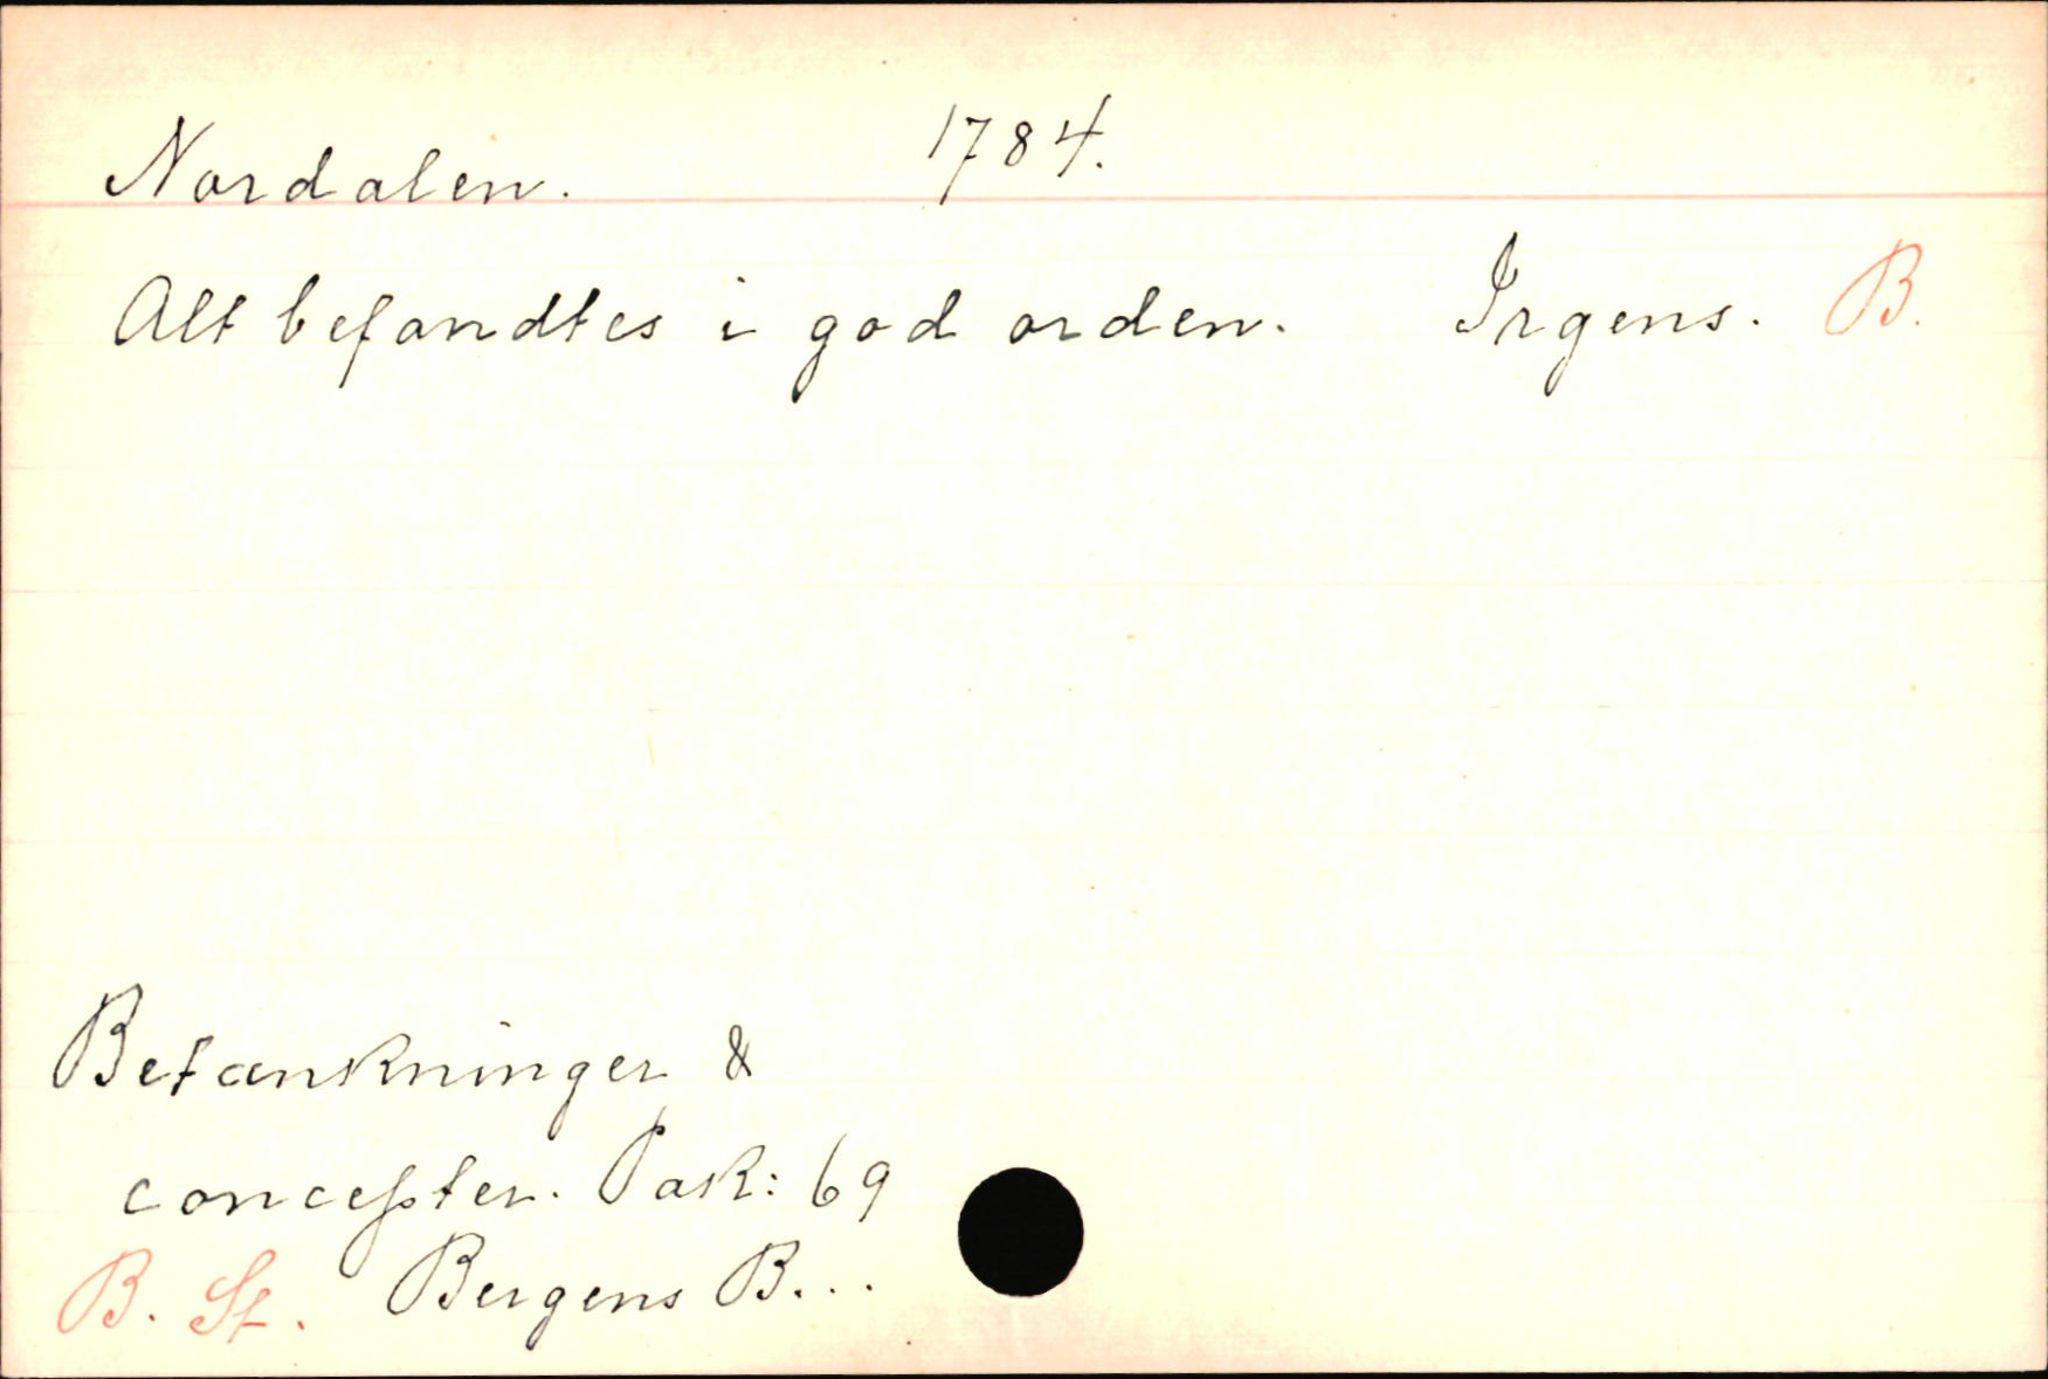 Nordalen. 1784.
Alt befandtes i god orden. Irgens. B.
Betænkninger &
concepter. Pak: 69
B. St. Bergens B...